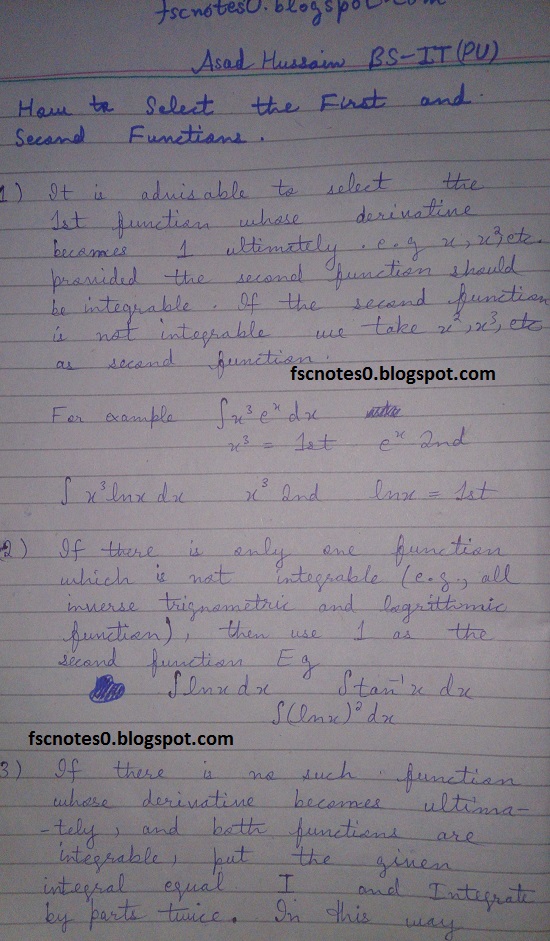 fscnotes0.blogspot.com
Asad Hussain BS-IT(PU)
How to Select the First and
Second Functions.
1) It is advisable to select the
1st function whose derivative
becomes 1 ultimately. e.g x, x³, etc.
provided the second function should
be integrable. If the second function
is not integrable we take x², x³, etc
as second function.
fscnotes0.blogspot.com
For example ∫x³eˣdx
x³ = 1st eˣ 2nd
∫x³lnx dx x³ 2nd lnx = 1st
2) If there is only one function
which is not integrable (e.g., all
inverse trignometric and logrithmic
function), then use 1 as the
second function Eg
∫lnx dx ∫tan⁻¹x dx
∫(lnx)²dx
fscnotes0.blogspot.com
3) If there is no such function
whose derivative becomes ultima-
-tely, and both functions are
integrable, put the given
integral equal I and Integrate
by parts twice. In this way